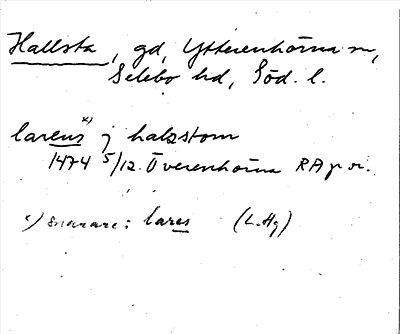 Hallsta, gd, Ytterenhörna sn,
Selebo hd, Söd. l.
larens x) j halzstom
1474 5/12. Överenhörna RA p. or.
x) snarare: lares (L. Hg)